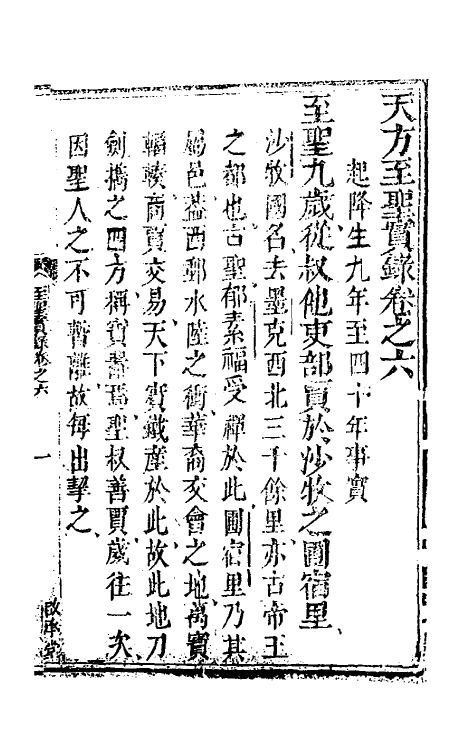 天方至聖實錄卷之六
起降生九年至四十年事實
至聖九歲從叔他吏部賈於沙牧之圃宿里
沙牧國名去墨克西北三千餘里亦古帝王
之都也古聖郁素福受禪於此圃宿里乃其
屬邑蓋西郵水陸之衝華裔交會之地萬寶
輻輳商賈交易天下賓鐵產於此故此地刀
劍擕之四方稱寶器焉聖叔善賈歲往一次
因聖人之不可暫離故每出挈之
至聖實錄卷之六
一
啟承堂